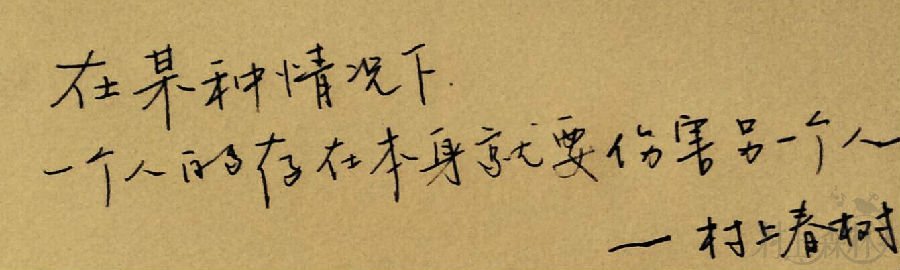 在某种情况下.
一个人的存在本身就要伤害另一个人
— 村上春树